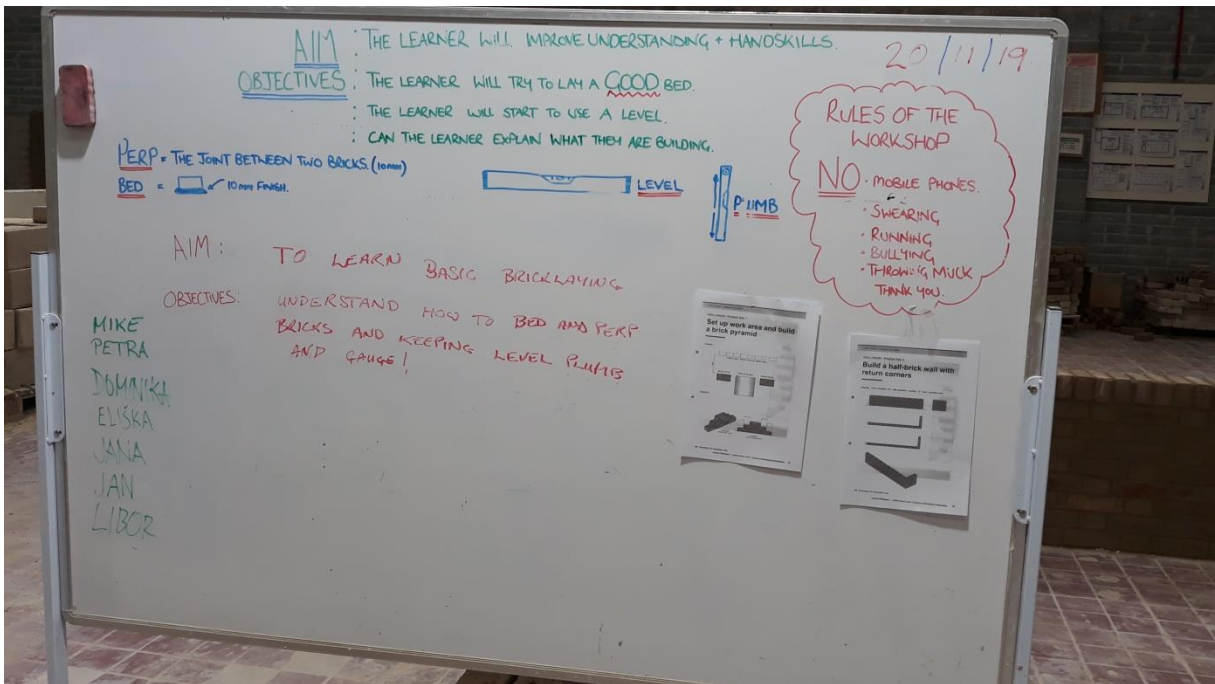 AIM : THE LEARNER WILL IMPROVE UNDERSTANDING + HANDSKILLS.
20/11/19
OBJECTIVES : THE LEARNER WILL TRY TO LAY A GOOD BED.
: THE LEARNER WILL START TO USE A LEVEL.
: CAN THE LEARNER EXPLAIN WHAT THEY ARE BUILDING.
PERP = THE JOINT BETWEEN TWO BRICKS. (10mm)
BED = 10mm FINISH.
LEVEL
PLUMB
RULES OF THE
WORKSHOP
NO · MOBILE PHONES.
· SWEARING
· RUNNING
· BULLYING
· THROWING MUCK
THANK YOU.
AIM : TO LEARN BASIC BRICKLAYING
OBJECTIVES: UNDERSTAND HOW TO BED AND PERP
BRICKS AND KEEPING LEVEL PLUMB
AND GAUGE!
MIKE
PETRA
DOMINIKA
ELIŠKA
JANA
JAN
LIBOR
Set up work area and build
a brick pyramid
Build a half-brick wall with
return corners